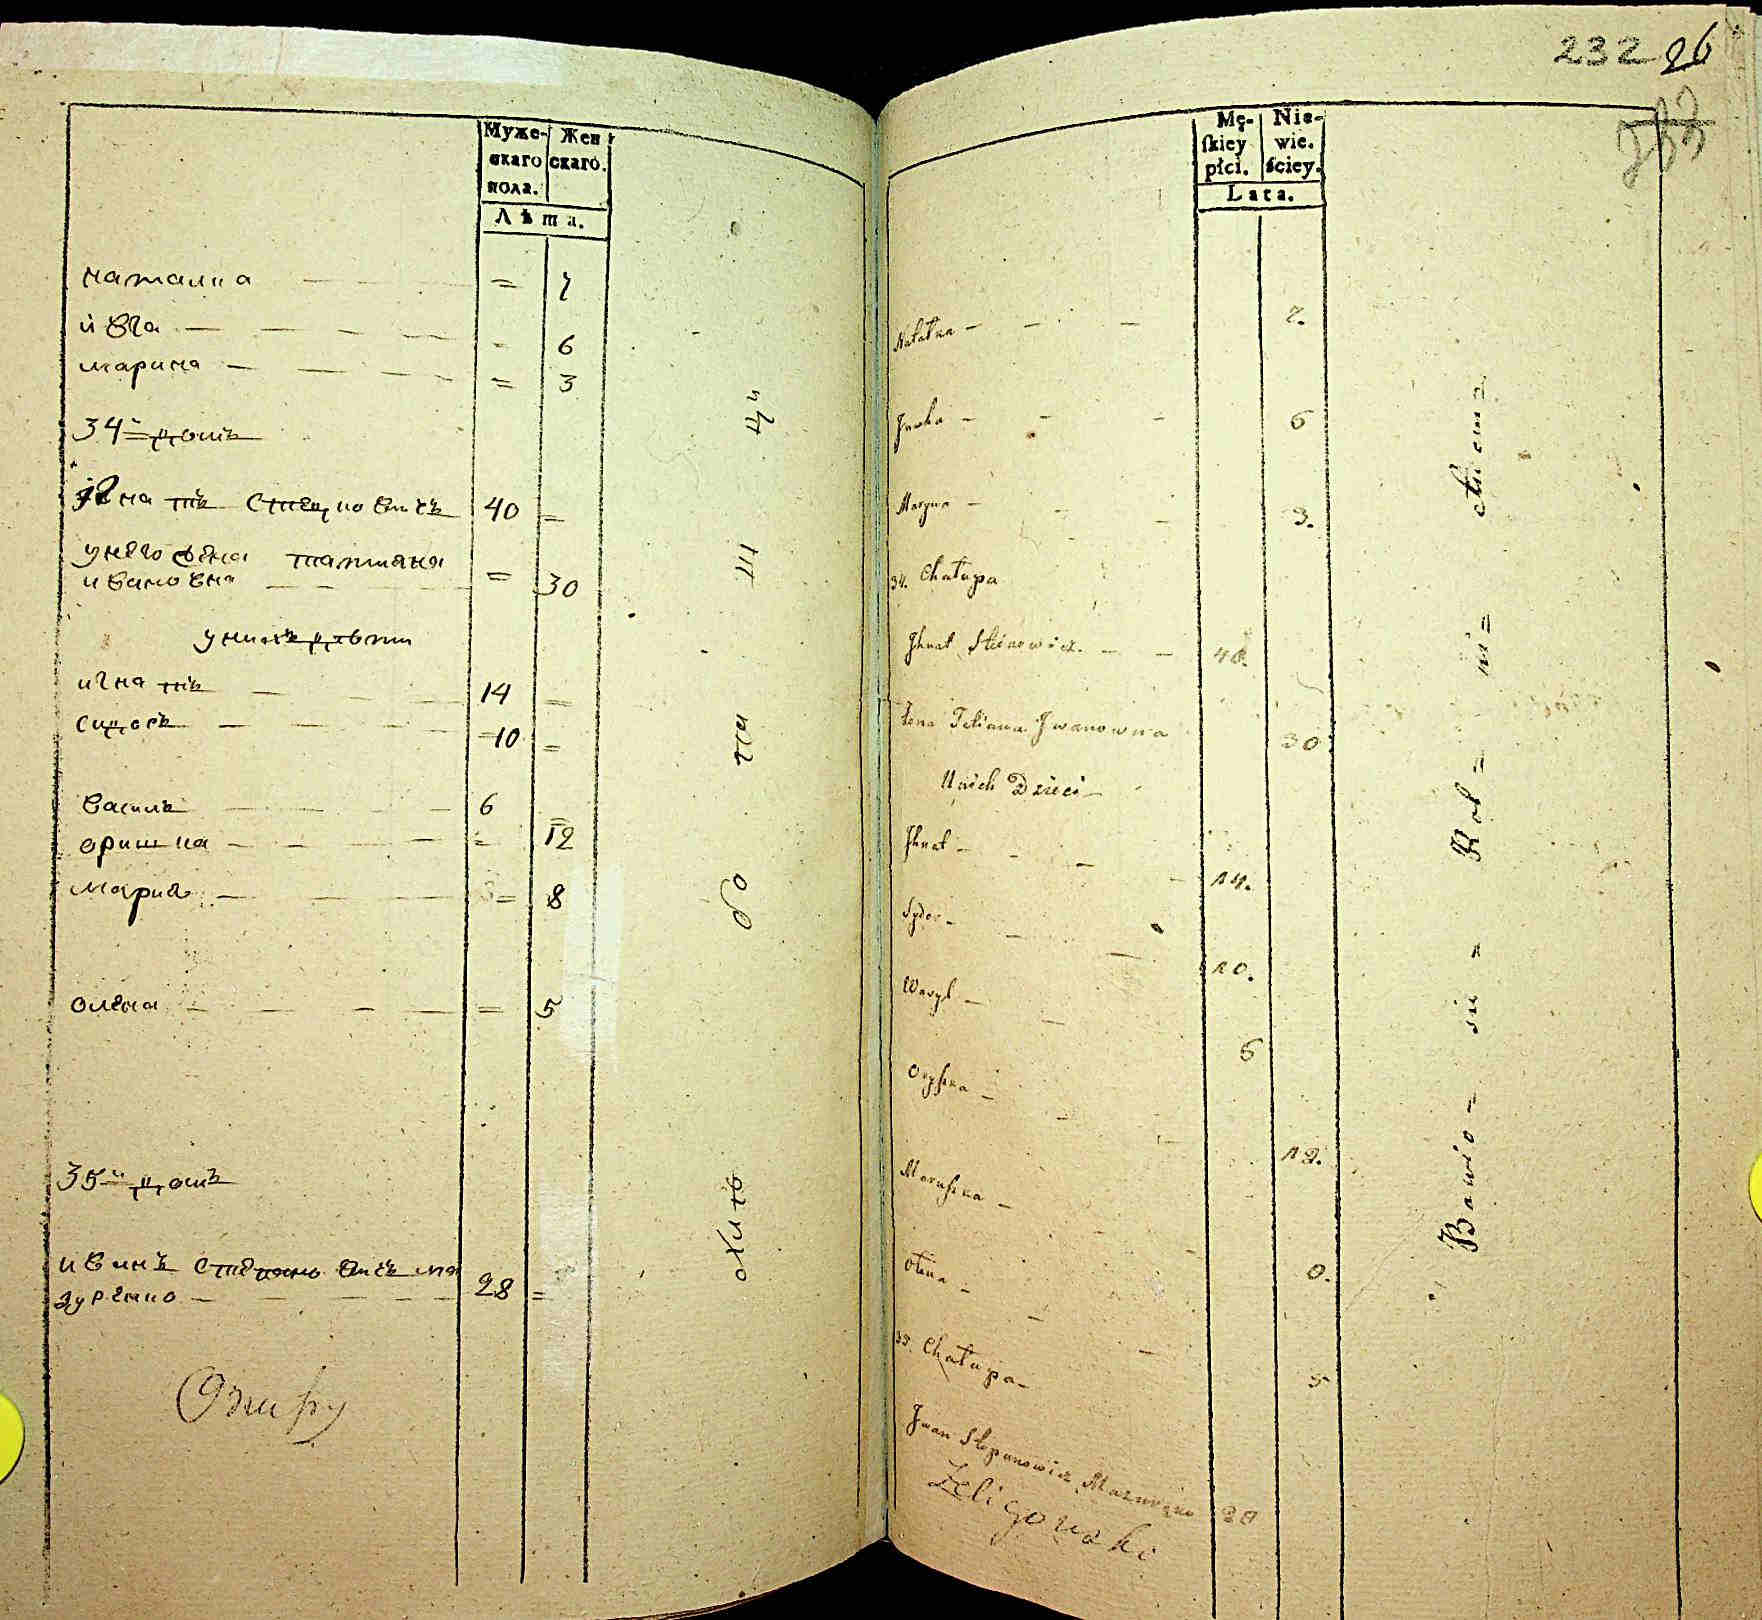 Муже-
скаго
пола.
Жен
скаго.
Лѣта.
наталка = 7
ивга - 6
марина = 3
34й домъ
игнатъ 40 =
унего жена татияна
ивановна = 30
унихъ дѣти
игнатъ 14 =
сидоръ 10 =
василь 6 =
оришка = 12
мария = 8
олена = 5
35й домъ
иванъ степановичъ ма
зуренко 28 =
232 26
Mę-
skiey
płci.
Nie-
wie.
ściey.
Lata.
Natałka 7.
Jwha 6
Maryna 3.
34. Chałupa
Jhnat 40.
Żona Tatiana Jwanowna 30
U nich Dzieci
Jhnat 14.
Sydor 10.
Wasyl 6
Oryszka 12.
Maruszka
Ołena 5
35. Chałupa
Jwan Stepanowicz Mazurenko 28
Żeligowski